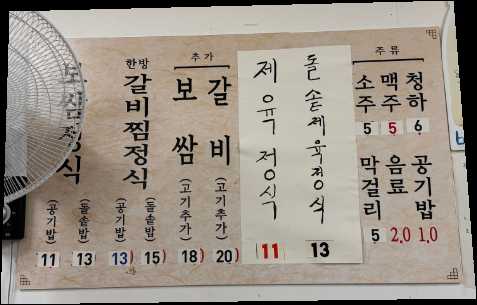 보쌈정식
(공기밥)
11
(돌솥밥)
13
한방
갈비찜정식
(공기밥)
13)
(돌솥밥)
15)
추가
보쌈
(고기추가)
18)
갈비
(고기추가)
20)
제육정식
11
돌솥제육정식
13
주류
소주
5
맥주
5
청하
6
막걸리
5
음료
2.0
공기밥
1.0